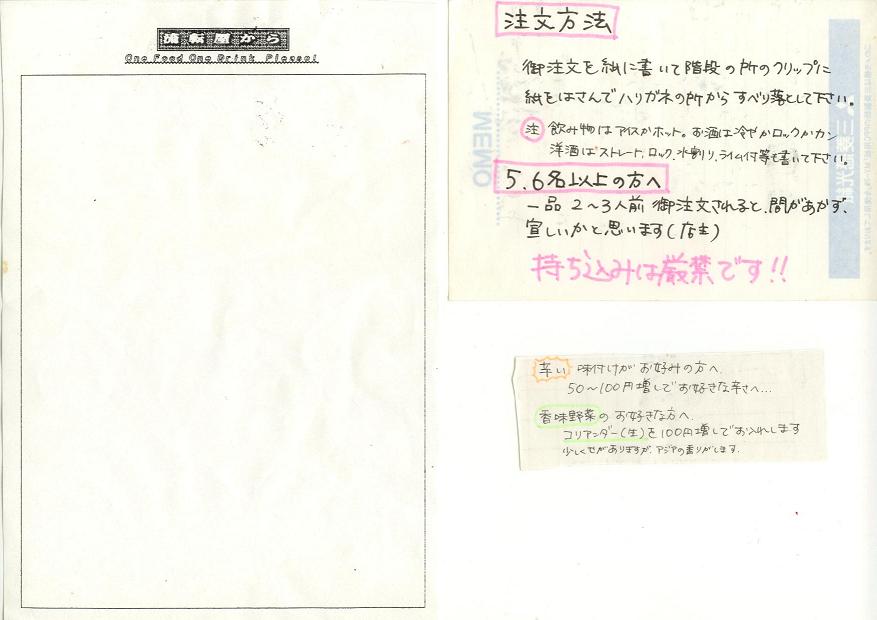 流転屋から
One Food One Drink Please!
注文方法
御注文を紙に書いて階段の所のクリップに
紙をはさんでハリガネの所からすべり落として下さい。
注 飲み物はアイスかホット。お酒は冷やかロックかカン
洋酒はストレート、ロック、水割り、ライム付等を書いて下さい。
5.6名以上の方へ
一品 2〜3人前 御注文されると、間があかず、
宜しいかと思います(店主)
持ち込みは厳禁です!!
MEMO
辛い 味付けがお好みの方へ
50〜100円増しでお好きな辛さへ...
香味野菜のお好きな方へ
コリアンダー(生)を100円増しでお入れします
少しくせがありますが、アジアの香りがします。